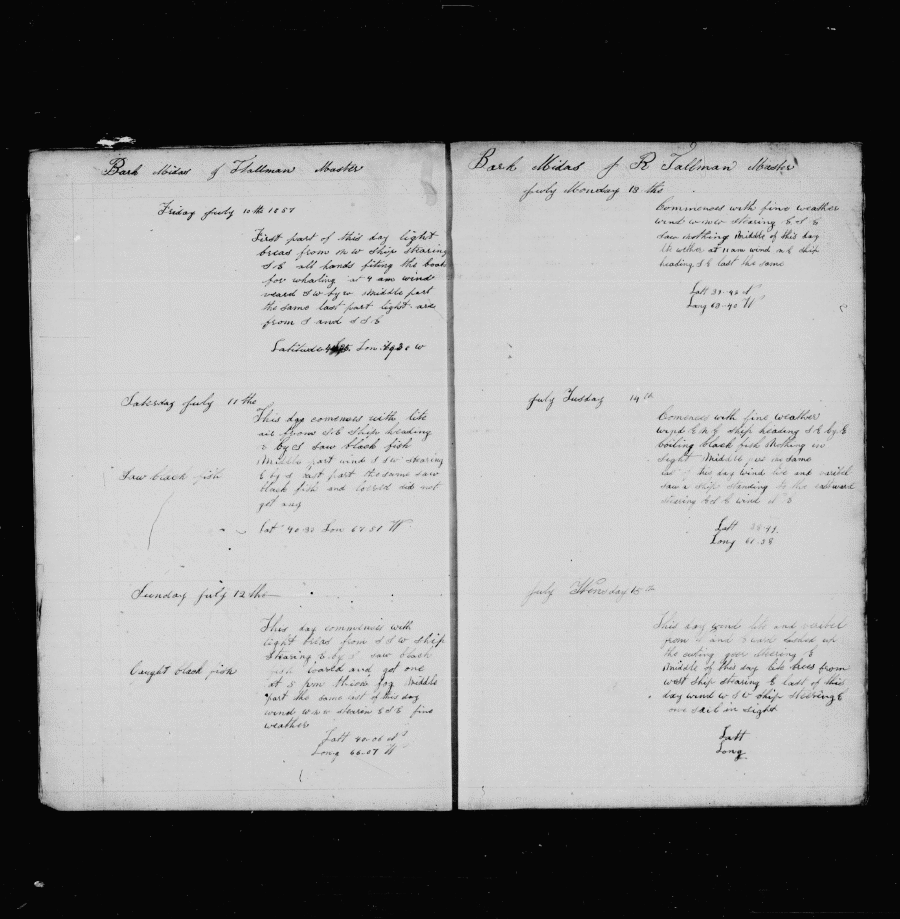 Bark Midas of Tallman Master
Friday July 10 th 1857
First part of this day light
breas from N W Ship stearing
S E all hands fiting the boats
for whaling at 4 am wind
veard S W by W Middle part
the same last part light are
from S and S S E
Latitude Lon W
Saterday July 11 the
This day comences with lite
air from S E Ship heading
E by S saw black fish
Middle part wind S S W stearing
E by S last part the same saw
black fish and lowred did not
get any
Saw black fish
Lat 40-30 Lon 67-51 W
Sunday July 12 the
This day commences with
light breas from S S W Ship
Stearing E by S saw black
fish lowred and got one
at 5 pm thick fog Middle
part the same last of this day
wind W N W stearin E S E fine
weather
Caught black fish
Latt 40-06 N
Long 66-07 W
Bark Midas of R Tallman Master
July Monday 13 the
Commences with fine weather
wind W N W stearing E S E
Saw nothing Middle of this day
wether at 11 am wind ship
heading S E last the same
Latt 39-42 N
Long 63-40 W
July Tusday 14 th
Comences with fine weather
wind E N E ship heading S E by E
boiling black fish Nothing in
sight Middle same
this day wind lite and varibel
saw a ship standing to the eastward
stearing wind
Latt
Long 61-38
July Wensday 15 th
This day wind lite and varibel
from and
the steering E
Middle of this day lite brees from
west Ship stearing E last of this
day wind W S W ship steering E
one sail in sight
Latt
Long